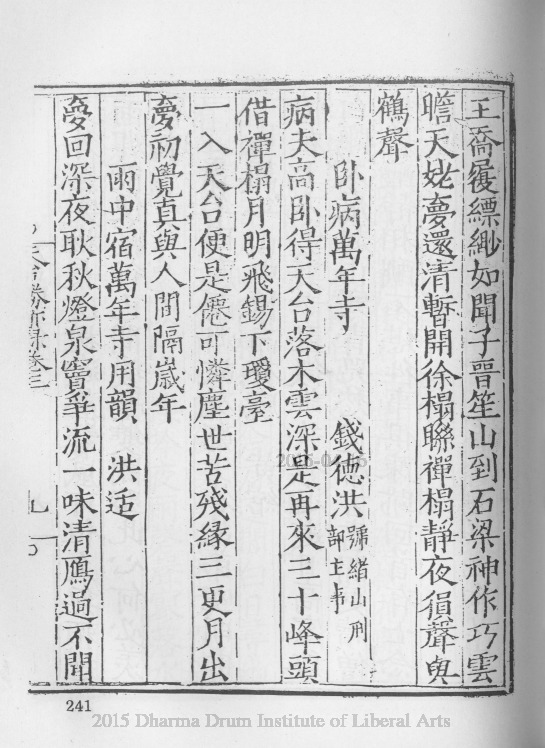 王喬屐縹緲如聞子晉笙山到石梁神作巧雲
瞻天姥夢還清暫開徐榻聯禪榻靜夜猿聲與
鶴聲
卧病萬年寺 錢德洪 號緒山刑部主事
病夫高卧得天台落木雲深是再來三十峰頭
借禪榻月明飛錫下瓊臺
一入天台便是僊可憐塵世苦殘緣三更月出
夢初覺直與人間隔歲年
雨中宿萬年寺用韻 洪适
夢回深夜耿秋燈泉竇爭流一味清鴈過不聞
天台勝跡録卷三
九
241
2015 Dharma Drum Institute of Liberal Arts